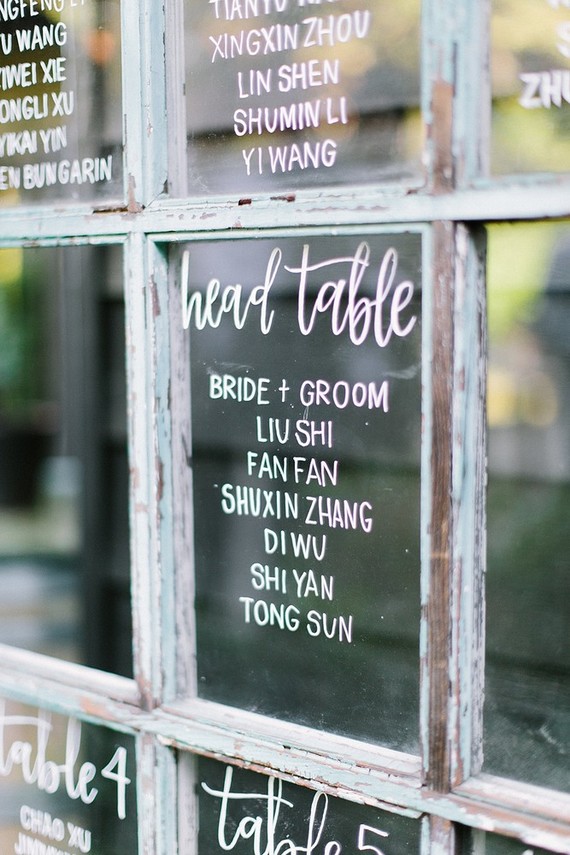 U WANG
IWEI XIE
ONGLI XU
YIKAI YIN
EN BUNGARIN
XINGXIN ZHOU
LIN SHEN
SHUMIN LI
YI WANG
ZHU
head table
BRIDE + GROOM
LIU SHI
FAN FAN
SHUXIN ZHANG
DI WU
SHI YAN
TONG SUN
table 4
CHAO XU
table 5